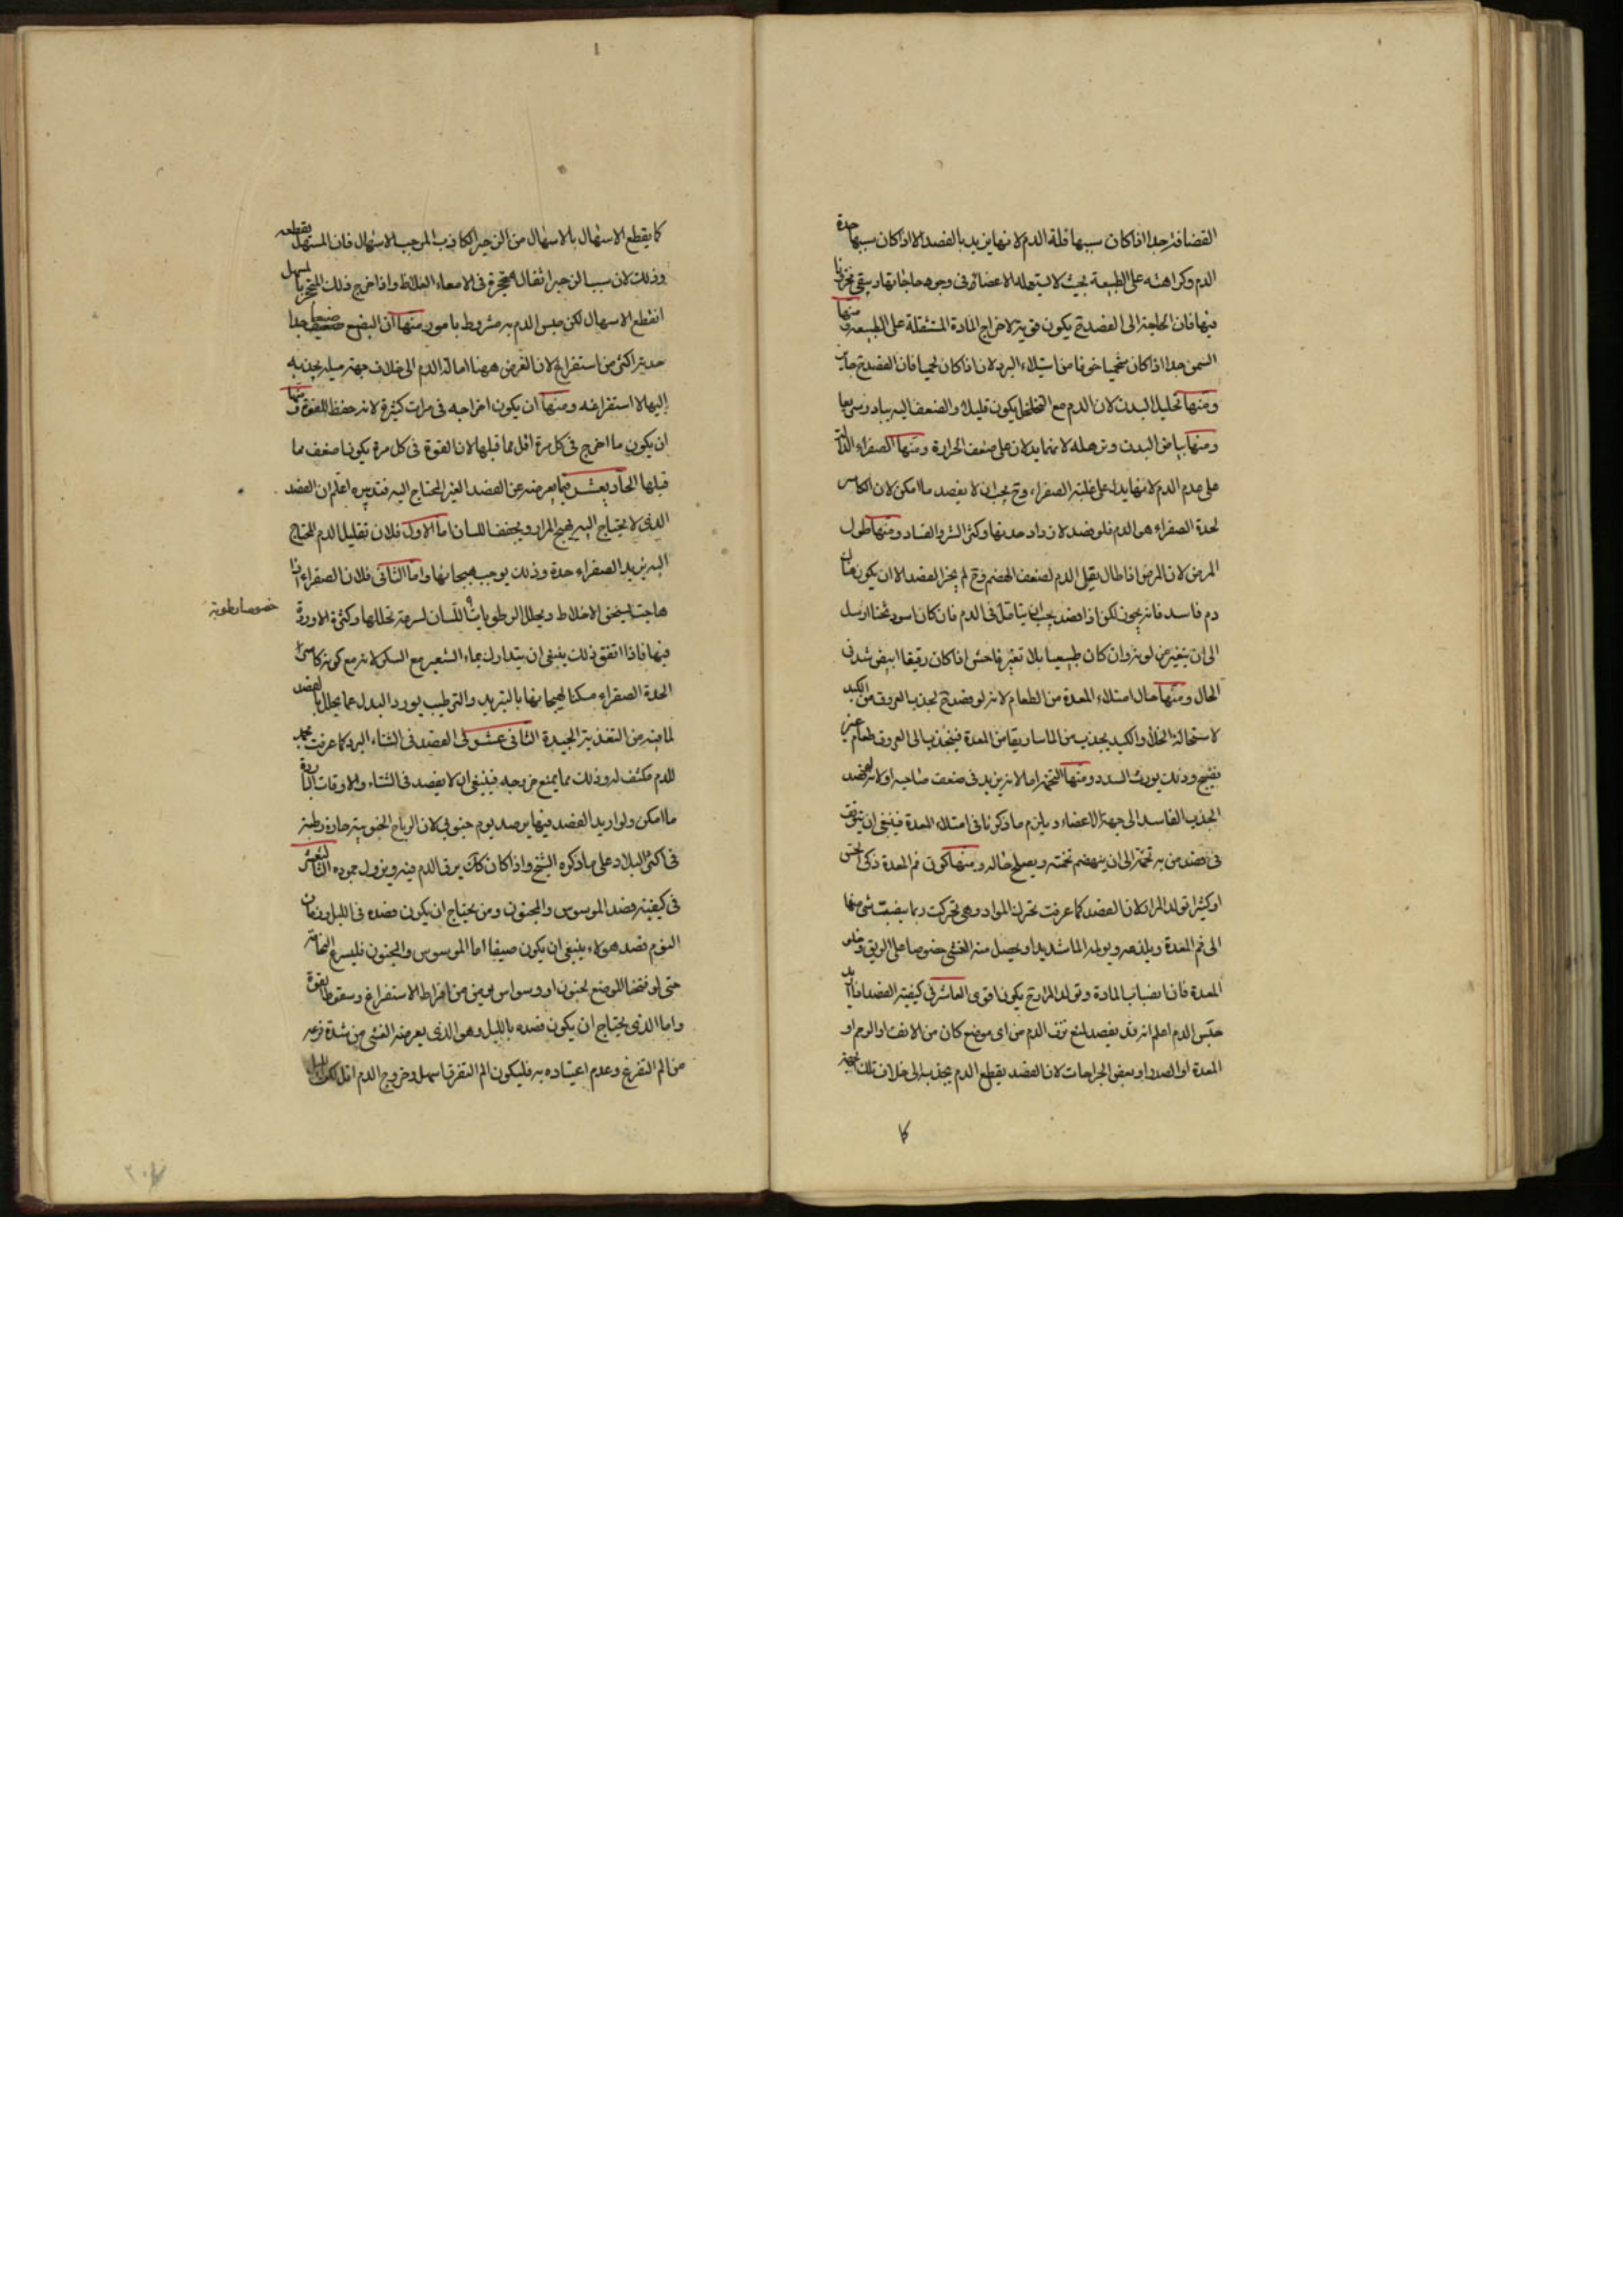 القضافة جدا اذا كان سببها قلة الدم لانها يزيد بالفصد الا اذا كان سببها حدة
الدم وكراهته على الطبيعة بحيث لا يستعمله الاعضاء في وجوه حاجاتها ويبقى مخزونا
فيها فان الحاجة الى الفصد ح يكون قوية لاخراج المادة المثقلة على الطبيعة ومنها
السمن جدا اذا كان شحميا خوفا من استيلاء البرد لان اذا كان لحميا فان الفصد ح جايز
ومنها تخلخل البدن لان الدم مع التخلخل يكون قليلا والضعف اليه يبادر سريعا
ومنها بياض البدن وترهله لانهما يدلان على ضعف الحرارة ومنها الصفراء الدالة
على عدم الدم لانها يدل على غلبة الصفراء وح يجب ان لا يفصد ما امكن لان الكاسر
لحدة الصفراء هو الدم فلو فصد لازداد حدتها وكثر الشر والفساد ومنها طول
المرض لان المرض اذا طال يقل الدم لضعف الهضم وح لم يجز الفصد الا ان يكون هناك
دم فاسد فانه يجوز لكن اذا فصد يجب ان يتامل في الدم فان كان اسود ثخنا ارسل
الى ان يتغير من لونه وان كان طبيعيا بلا تغير فاحش اذا كان رقيقا ابيض شد في
الحال ومنها حال امتلاء المعدة من الطعام لانه لو فصد ح لجذب العروق من الكبد
لاستحالة الخلاء والكبد يجذب من الماساريقا من المعدة فينجذب الى العروق طعام غير
نضيج وذلك يورث السدد ومنها التخمة اما لانه يزيد في ضعف صاحبه او لانه لو فصد
الجذب الفاسد الى جهة الاعضاء ويلزم ما ذكرنا في امتلاء المعدة فينبغي ان يتوقف
في فصد من به تخمة الى ان ينهضم تخمته ويصلح حاله ومنها كون فم المعدة ذكي الحس
او كثير تولد المرار لان الفصد كما عرفت تحرك المواد وهي تحركت ربما ينصب شي منها
الى فم المعدة ويلذعه ويولمه الما شديدا ويحصل منه الغشي خصوصا على الريق وخلو
المعدة فان انصباب المادة وتولد المرار ح يكون اقوى العاشر في كيفية الفصد اذا اريد
حبس الدم اعلم انه قد يفصد لمنع نزف الدم من اي موضع كان من الانف او الرحم او
المعدة او الصدر او بعض الجراحات لان الفصد يقطع الدم بجذبه الى خلاف تلك الجهة
كا
كما يقطع الاسهال بالاسهال من الزحير الكاذب الموجب للاسهال فان المسهل يقطعه
وذلك لان سبب الزحير اثفال متحجرة في الامعاء الغلاظ واذا خرج ذلك المتحجر بالمسهل
انقطع الاسهال لكن حبس الدم به مشروط بامور منها ان البضع ضيقا جدا
حذرا اكثر من استفراغ لان الغرض ههنا امالة الدم الى خلاف جهة ميله يجذبه
اليها لا استفراغه ومنها ان يكون اخراجه في مرات كثيرة لانه حفظ للقوة ومنها
ان يكون ما اخرج في كل مرة اقل مما قبلها لان القوة في كل مرة يكون اضعف مما
قبلها الحادي عشر فيما يعرضه عن الفصد الغير المحتاج اليه وتدبيره اعلم ان الفصد
الذي لا يحتاج اليه يهيج المرار ويجفف اللسان اما الاول فلان تقليل الدم المحتاج
اليه يزيد الصفراء حدة وذلك يوجب هيجانها واما الثاني فلان الصفراء اذا
هاجت يسخن الاخلاط ويحلل الرطوبات خصوصا رطوبة اللسان لسرعة تحللها وكثرة الاوردة
فيها فاذا اتفق ذلك ينبغي ان يتدارك بماء الشعير مع السكر لانه مع كونه كاسرا
لحدة الصفراء مسكنا لهيجانها بالتبريد والترطيب يورد البدل عما يحلل بالفصد
لما فيه من التغذية الجيدة الثاني عشر في الفصد في الشتاء البرد كما عرفت مجمد
للدم مكثف له وذلك مما يمنع خروجه فينبغي ان لا يفصد في الشتاء والاوقات الباردة
ما امكن ولو اريد الفصد فيها يرصد يوم جنوبي لان الرياح الجنوبية حارة رطبة
في اكثر البلاد على ما ذكره الشيخ واذا كان كك يرق الدم فيه ويزول جموده الثالث عشر
في كيفية فصد الموسوس والمجنون ومن يحتاج ان يكون فصده في الليل وزمان
النوم فصد هولاء ينبغي ان يكون ضيقا اما الموسوس والمجنون فليسرع التحامه
حتى لو فتحنا الموضع لجنون او وسواس يومن من افراط الاستفراغ وسقوط القوة
واما الذي يحتاج ان يكون فصده بالليل وهو الذي يعرضه الغشي من شدة فزعه
من الم التفرق وعدم اعتياده به فليكون الم التفرق اسهل وخروج الدم اقل